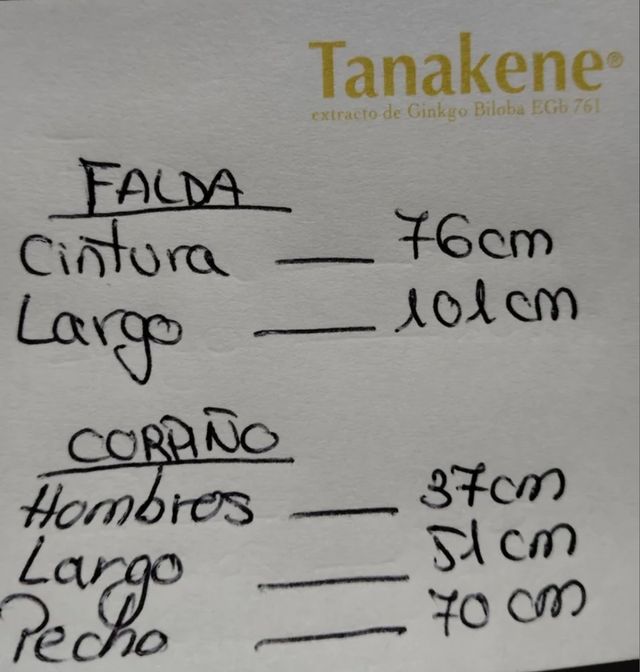 Tanakene®
extracto de Ginkgo Biloba EGb 761
FALDA
Cintura — 76cm
Largo — 101cm
CORPIÑO
Hombros — 37cm
Largo — 51cm
Pecho — 70cm